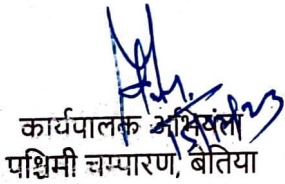 कार्यपालक अभियंता
पश्चिमी चम्पारण, बेतिया